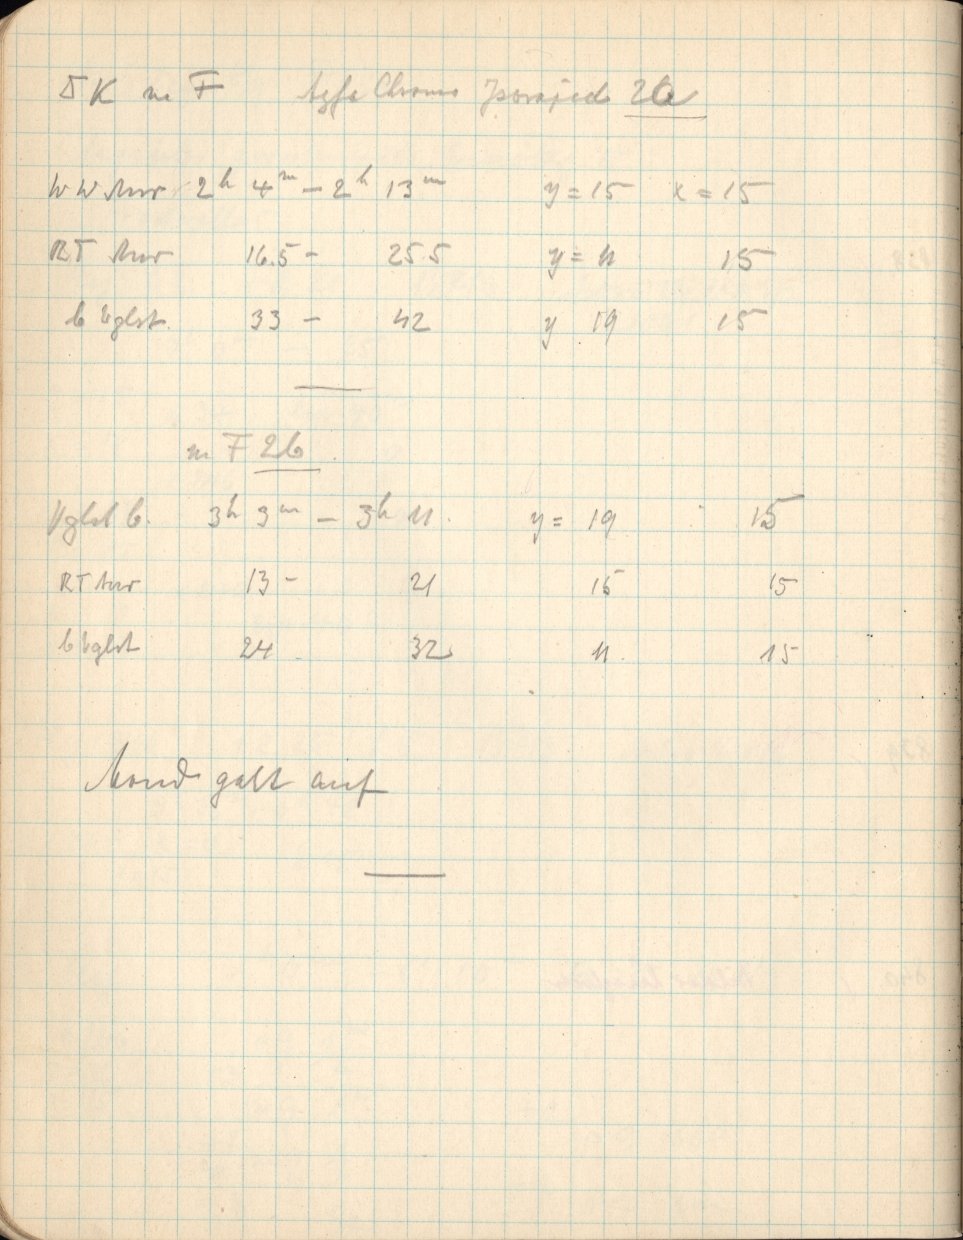 K m F Agfa Chromo Isorapid 2a
WW Aur 2h 4m – 2h 13m y = 15 x = 15
RT Aur 16.5 – 25.5 y = 11 15
b Vglst. 33 – 42 y 19 15
m F 2b
Vglst b. 3h 3m – 3h 11. y = 19 15
RT Aur 13 – 21 15 15
b Vglst 24 32 11. 15
Mond geht auf